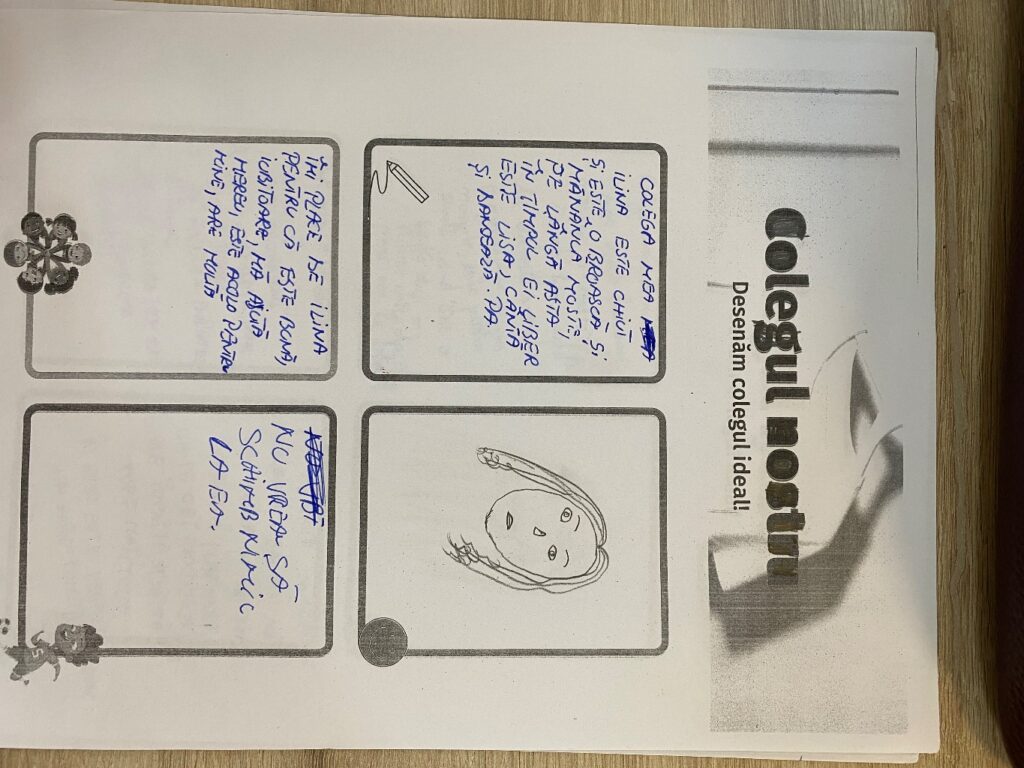 Colegul nostru
Desenăm colegul ideal!
COLEGA MEA
ILINA ESTE CHIUI
ȘI ESTE O BROASCĂ ȘI
MĂNANCĂ MUSTE,
PE LÂNGĂ ASTA
ÎN TIMPUL EI LIBER
ESTE LISA, CANTĂ
ȘI DANSEAZĂ DA.
ÎMI PLACE DE ILINA
PENTRU CĂ ESTE BUNĂ,
IUBITOARE, MĂ AJUTĂ
MEREU, ESTE ACOLO PENTRU
MINE, ARE MULTĂ
NU VREAU SĂ
SCHIMB NIMIC
LA EA.